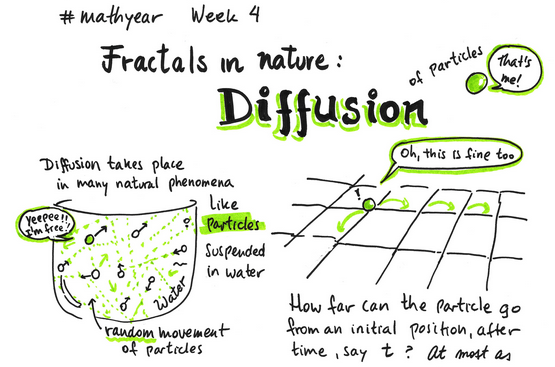 #mathyear Week 4
Fractals in nature:
Diffusion
of particles
That's
me!
Diffusion takes place
in many natural phenomena
Like
particles
suspended
in water
Yeepee!!
I'm free!
Water
random movement
of particles
Oh, this is fine too
!
How far can the particle go
from an initial position, after
time, say t? At most as